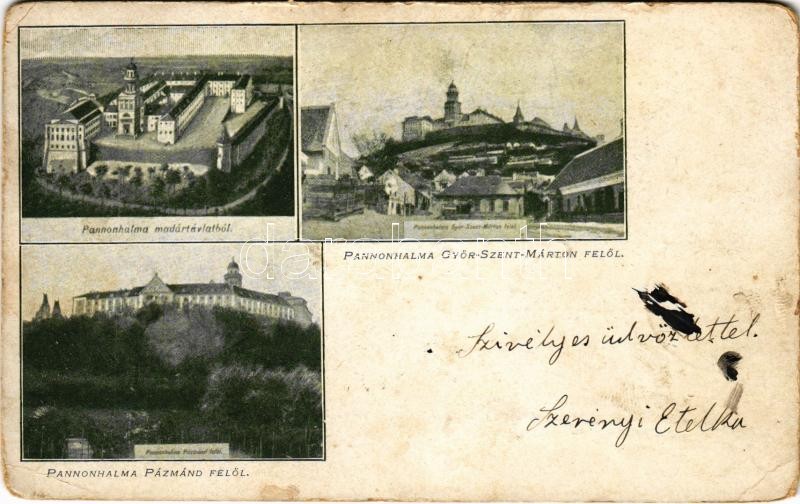 Pannonhalma madártávlatból.
Pannonhalma Győr-Szent-Márton felől.
PANNONHALMA GYŐR-SZENT-MÁRTON FELŐL.
darabanth
Szivélyes üdvözlettel.
Szerényi Etelka
Pannonhalma Pázmánd felől.
PANNONHALMA PÁZMÁND FELŐL.